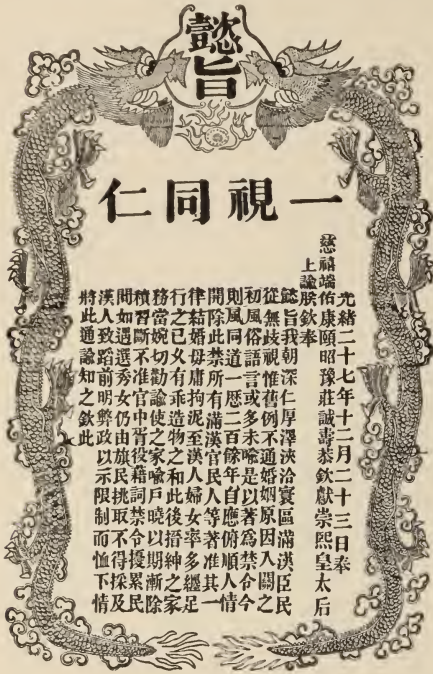 懿旨
一視同仁
光緒二十七年十二月二十三日奉
慈禧端佑康頤昭豫莊誠壽恭欽獻崇熙皇太后
上諭朕欽奉
懿旨我朝深仁厚澤浹洽寰區滿漢臣民
從無歧視惟舊例不通婚姻原因入關之
初風俗語言或多未喻是以著為禁令今
則風同道一歷二百餘年自應俯順人情
開除此禁所有滿漢官民人等著准其一
律結婚毋庸拘泥至漢人婦女率多纏足
行之已久有乖造物之和此後搢紳之家
務當婉切勸諭使之家喻戶曉以期漸除
積習斷不准官中胥役藉詞禁令擾累民
間如遇選秀女仍由旗民挑取不得採及
漢人致蹈前明弊政以示限制而恤下情
將此通諭知之欽此